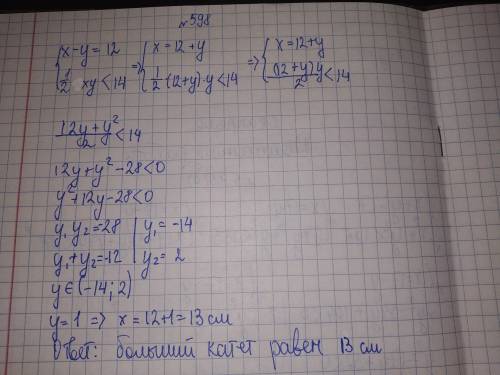 №598
{ x-y=12 => { x=12+y => { x=12+y
{ 1/2 xy<14 { 1/2·(12+y)·y<14 { (12+y)y/2<14
12y+y²/2<14
12y+y²-28<0
y²+12y-28<0
y₁y₂=-28 | y₁=-14
y₁+y₂=-12 | y₂=2
y∈(-14;2)
y=1 => x=12+1=13см
Ответ: больший катет равен 13 см